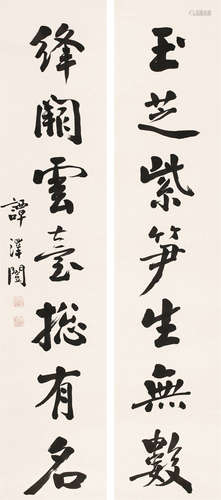 玉芝紫笋生無數
絳闕雲臺總有名
譚澤闓